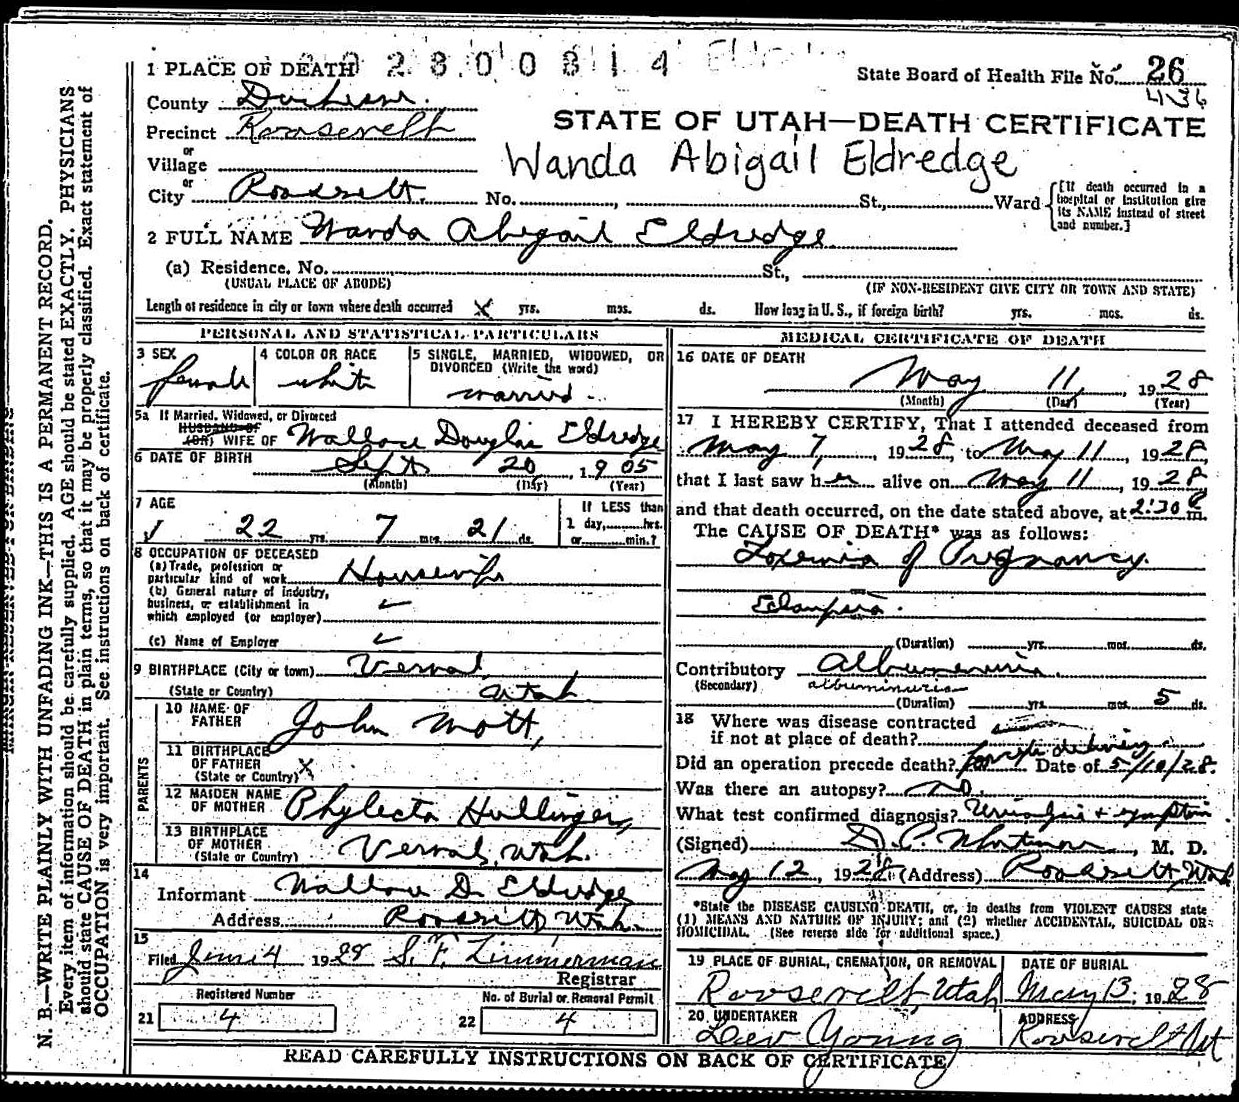 1 PLACE OF DEATH 2 8 0 0 8 1 4
State Board of Health File No. 26
436
County Duchesne.
STATE OF UTAH—DEATH CERTIFICATE
Precinct Roosevelt
or
Village
Wanda Abigail Eldredge
or
City Roosevelt. No. , St., Ward {[If death occurred in a hospital or institution give its NAME instead of street and number.]
2 FULL NAME Wanda Abigail Eldredge
(a) Residence. No. St.,
(USUAL PLACE OF ABODE) (IF NON-RESIDENT GIVE CITY OR TOWN AND STATE)
Length of residence in city or town where death occurred X yrs. mos. ds. How long in U. S., if foreign birth? yrs. mos. ds.
PERSONAL AND STATISTICAL PARTICULARS
3 SEX
female
4 COLOR OR RACE
white
5 SINGLE, MARRIED, WIDOWED, OR DIVORCED (Write the word)
married.
5a If Married, Widowed, or Divorced
HUSBAND OF
(OR) WIFE OF Wallace Douglas Eldredge
6 DATE OF BIRTH Sept 20, 1905
(Month) (Day) (Year)
7 AGE
22 yrs. 7 mos. 21 ds.
If LESS than
1 day, hrs.
or min.?
8 OCCUPATION OF DECEASED
(a) Trade, profession or
particular kind of work Housewife
(b) General nature of industry,
business, or establishment in
which employed (or employer)
(c) Name of Employer
9 BIRTHPLACE (City or town) Vernal,
(State or Country) Utah
PARENTS
10 NAME OF FATHER John Mott,
11 BIRTHPLACE OF FATHER
(State or Country) X
12 MAIDEN NAME OF MOTHER Phylecta Hullinger,
13 BIRTHPLACE OF MOTHER
(State or Country) Vernal, Utah.
14
Informant Wallace D. Eldredge
Address Roosevelt, Utah.
15
Filed June 4 1928 S. F. Zimmerman
Registrar
Registered Number
21 4
No. of Burial or Removal Permit
22 4
MEDICAL CERTIFICATE OF DEATH
16 DATE OF DEATH
May 11, 1928
(Month) (Day) (Year)
17 I HEREBY CERTIFY, That I attended deceased from
May 7, 1928, to May 11, 1928,
that I last saw her alive on May 11, 1928,
and that death occurred, on the date stated above, at 2:30 P m.
The CAUSE OF DEATH* was as follows:
Toxemia of Pregnancy.
Eclampsia.
(Duration) yrs. mos. ds.
Contributory Albumenuria
(Secondary) albuminuria
(Duration) yrs. mos. 5 ds.
18 Where was disease contracted
if not at place of death?
Did an operation precede death? forceps delivery. Date of 5/10/28.
Was there an autopsy? no.
What test confirmed diagnosis? Urinalysis + symptoms
(Signed) , M. D.
May 12, 1928 (Address) Roosevelt, Utah
*State the DISEASE CAUSING DEATH, or, in deaths from VIOLENT CAUSES state
(1) MEANS AND NATURE OF INJURY; and (2) whether ACCIDENTAL, SUICIDAL OR
HOMICIDAL. (See reverse side for additional space.)
19 PLACE OF BURIAL, CREMATION, OR REMOVAL
Roosevelt, Utah
DATE OF BURIAL
May 13, 1928
20 UNDERTAKER
Lew Young
ADDRESS
Roosevelt Ut
READ CAREFULLY INSTRUCTIONS ON BACK OF CERTIFICATE
N. B.—WRITE PLAINLY WITH UNFADING INK—THIS IS A PERMANENT RECORD.
Every item of information should be carefully supplied. AGE should be stated EXACTLY. PHYSICIANS
should state CAUSE OF DEATH in plain terms, so that it may be properly classified. Exact statement of
OCCUPATION is very important. See instructions on back of certificate.